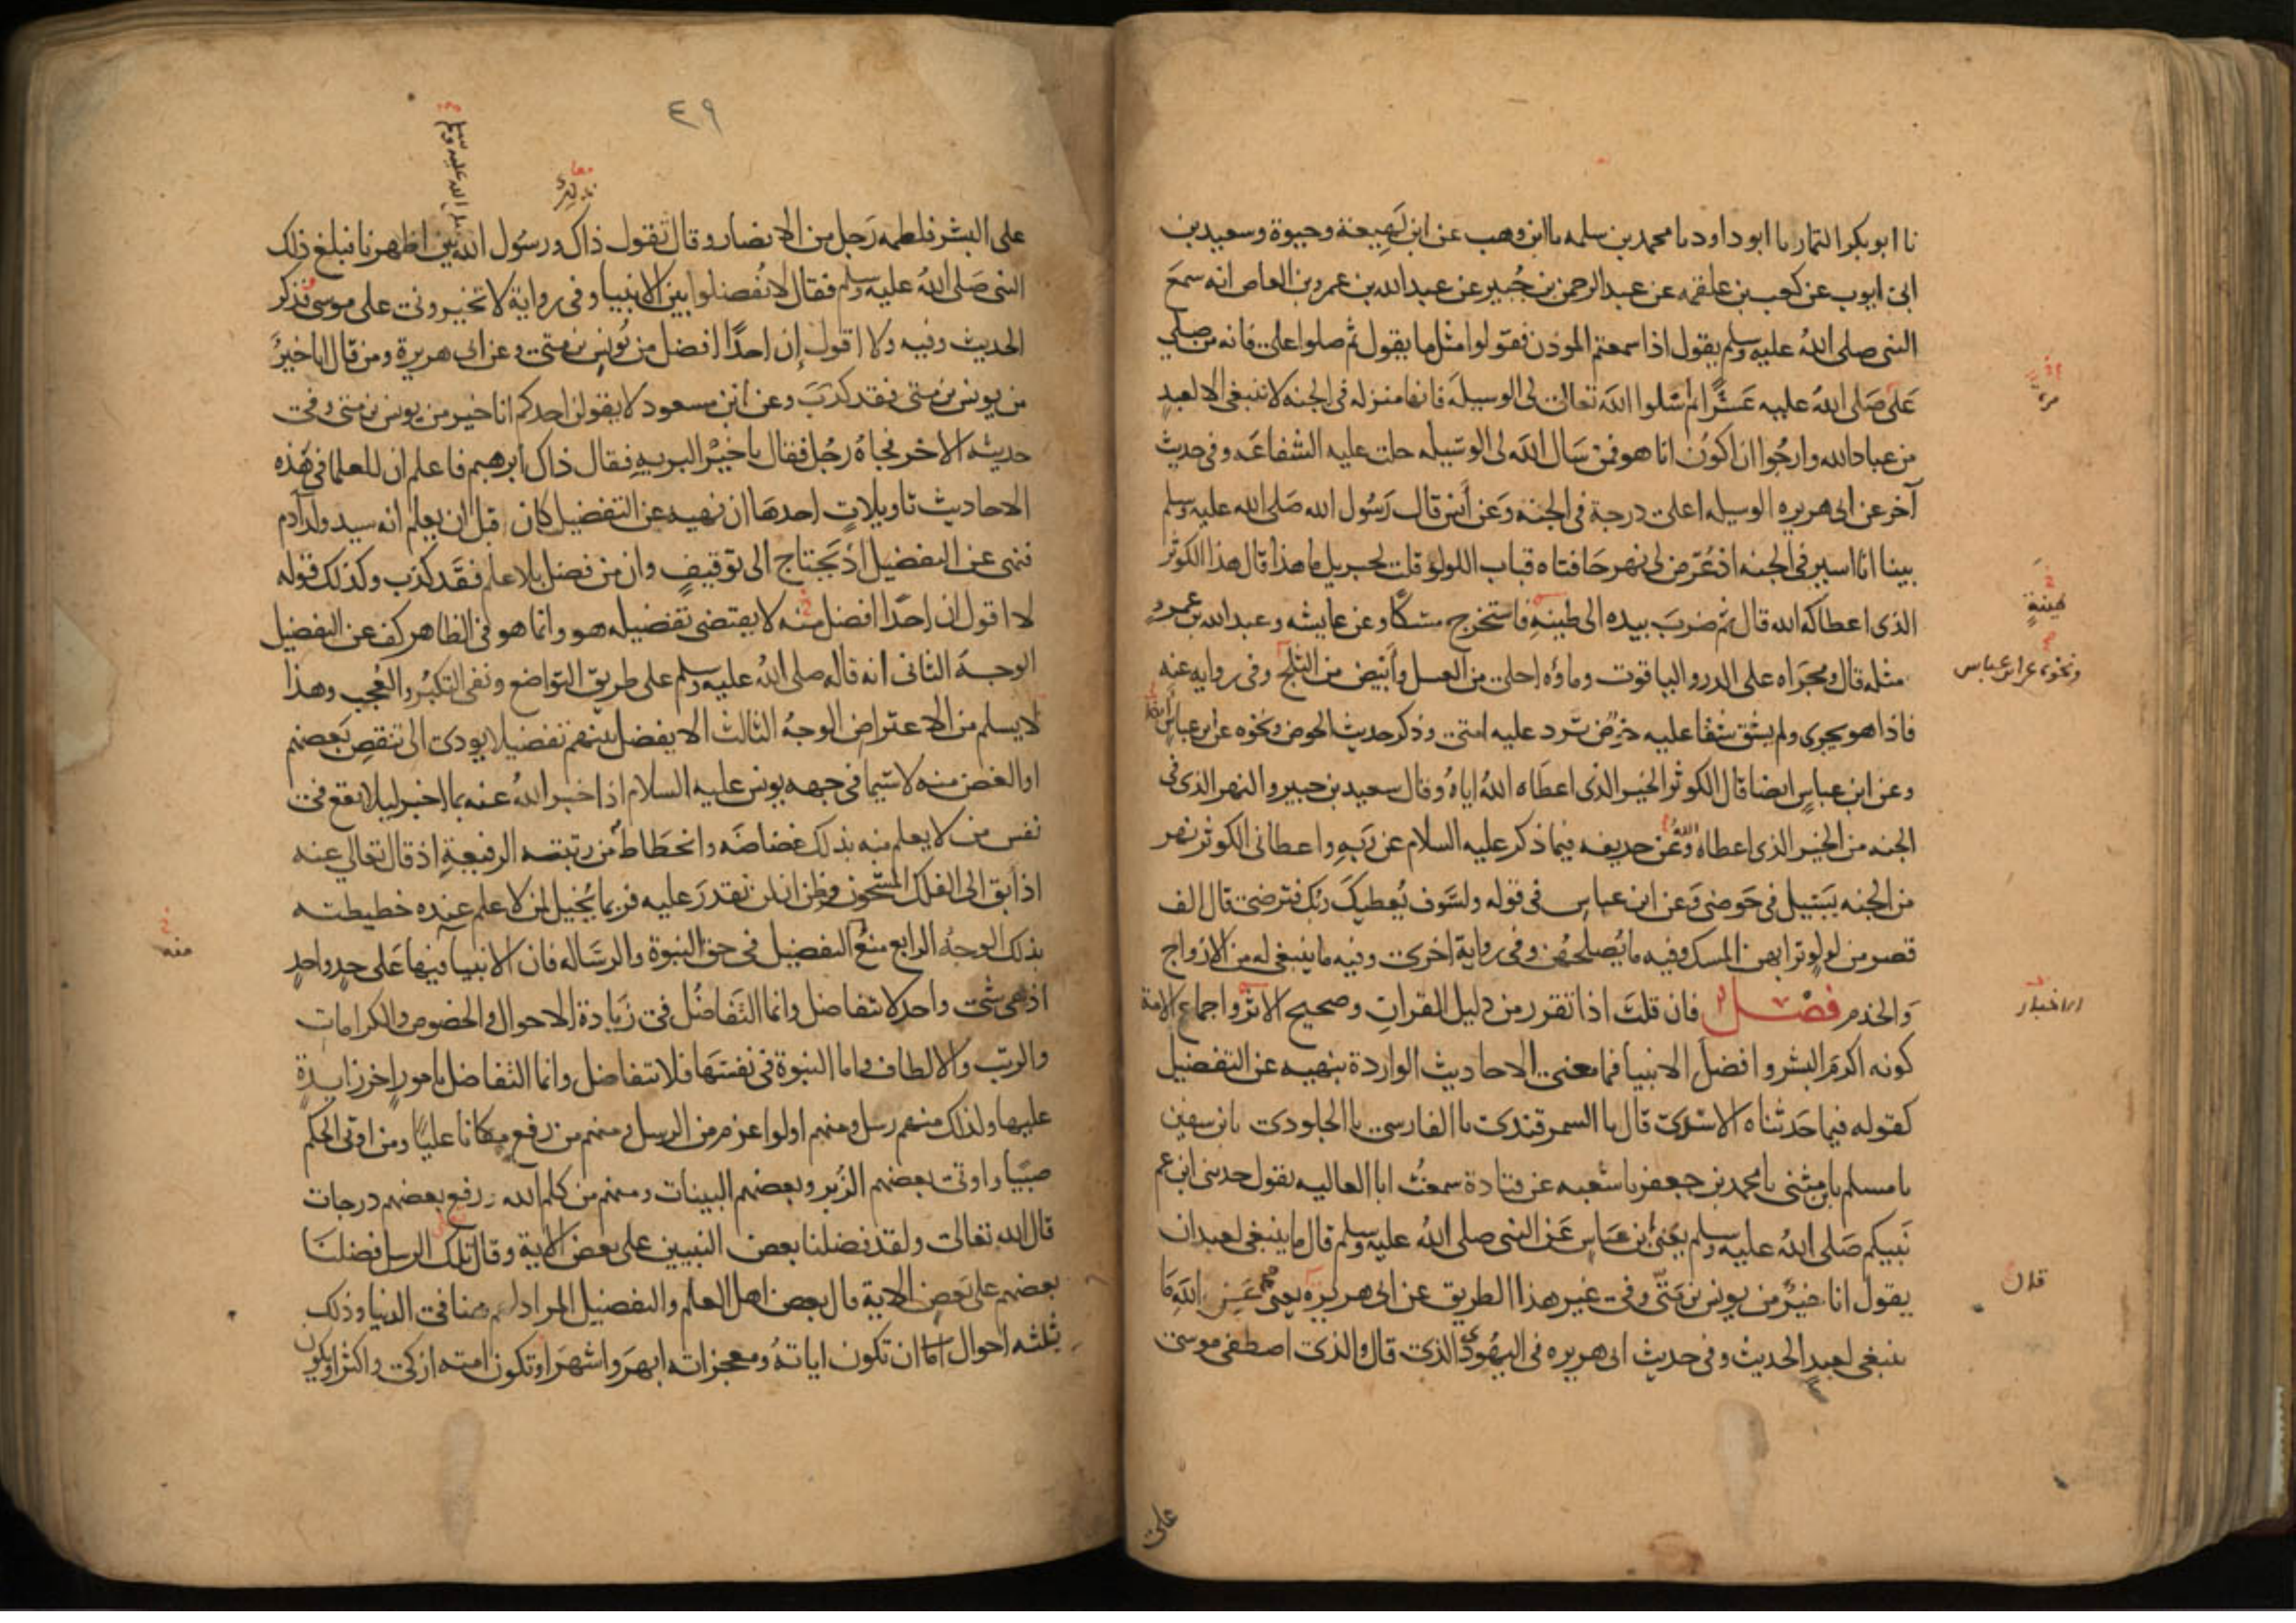 نا ابو بكر التمار نا ابو داود نا محمد بن سلمه نا ابن وهب عن ابن لَهِيعة وحيوة وسعيد بن
ابى ايوب عن كعب بن علقمه عن عبد الرحمن بن جُبير عن عبد الله بن عمرو بن العاص انه سمعَ
النبى صلى اللهُ عليه وسلم يقول اذا سمعتم الموذن فقولوا مثل ما يقول ثم صلوا على فانه من صلى
مرة
عَلى صَلى اللهُ عليه عَشرًا ثم سَلوا اللهَ تعالى لى الوسيلهَ فانها منزله فى الجنه لا تنبغى الا لعبدٍ
من عباد الله وارجُوا ان اكونُ انا هو فمَن سَال اللهَ لى الوسَيله حلت عليه الشفاعَه وفى حديث
آخر عن ابى هريره الوسيله اعلى درجة فى الجنه وَعن أنس قال رَسُول الله صَلى الله عليه وسلم
بينا انا اسير فى الجنه اذ عُرّض لى نهر حَافتاه قباب اللولؤ قلت لجبريل ما هذا قال هذا الكوثر
طينةٍ
الذى اعطاكه الله قال ثم ضربَ بيده الى طينهِ فاستخرج مسكًا وعن عايشه وعبد الله بن عمرو
مثله قال ومجَراه على الدر والياقوت وماؤه احلى من العسل وأبيَض من الثلج وفى روايه عنه
ونحوه عن ابن عباس
فاذا هو يجرى ولم يشق شقا عليه حَوض ترد عليه امتى وذكر حديث الحوض ونحوه عن ابن عباس
وعن ابن عباسٍ ايضا قال الكوثر الخير الذى اعطَاه اللهُ اياهُ وقال سعيد بن جبير والنهر الذى فى
الجنه من الخير الذى اعطاه الله وَعَن حذيفه فيما ذكر عليه السلام عن رَبهِ واعطانى الكوثر نهر
من الجنه يَسيل فى حَوضى وَعن ابن عباسٍ فى قوله ولسَوف يُعطيكَ ربُك فترضى قال الف
قصر من لولو ترابهن المسك وفيه ما يُصلحهُن وفى رواية اخرى وفيه ما ينبغى له من الازواج
وَالخدم فصْل فان قلتَ اذا تقرر من دليل القرانِ وصحيح الاثر واجماع الامة
الاخبار
كونه اكرمَ البشر وافضلَ الانبيا فما معنى الاحاديث الواردة بنهيه عن التفضيل
كقوله فيما حَدثناه الاسَدى قال نا السمرقندى نا الفارسى نا الجلودى نا بن سفين
نا مسلم نا بن مثنى نا محمد بن جعفر نا شعبه عن قتادة سمعتُ ابا العاليه يقول حدثنى ابن عم
نَبيكم صَلى اللهُ عليه وسلم يَعنى بن عبَاسٍ عَن النبى صلى اللهُ عليه وسلم قال ما ينبغى لعبد ان
يقول انا خيرٌ من يونس بن مَتَّى وفى غير هذا الطريق عن ابى هريره يعنى عَن اللهِ مَا
قال
ينبغى لعبدٍ الحديث وفى حديث ابى هريره فى اليهُودى الذى قال والذى اصطفى موسى
على
٤٩
على البشر فلطمه رَجل من الانصار وقال تقول ذاك ورسُول الله بين اظهرنا فبلغ ذلك
النبى صَلى اللهُ عليه وسلم فقال لا تُفضلوا بين الانبيا وفى رواية لا تخيرونى على موسى فذكر
الحديث وفيه ولا اقول إن احدًا افضل من يُونس بن متى وعن ابى هريرة ومن قال انا خيرٌ
من يونس بن متى فقد كذبَ وعن ابن مسعود لا يقولن احدكم انا خير من يونس بن متى وفى
حديثه الاخر فجاهُ رجُل فقال يا خيْر البريهِ فقال ذاك ابرهيم فاعلم ان للعلما فى هَذه
الاحاديث تاويلاتٍ احدهَا ان نهيه عن التفضيل كان قبل ان يعلم انه سيد ولد آدم
فنهى عن التفضيل اذ يَحتاج الى توقيفٍ وان من فضل بلا علم فقَد كذب وكذلك قوله
لا اقول ان احدًا افضل منه لا يقتضى تفضيله هو وانما هو فى الظاهر كف عن التفضيل
الوجهُ الثانى انه قاله صلى اللهُ عليه وسلم على طريق التواضع ونفى التكبُر والعُجب وهذا
لا يسلم من الاعتراض الوجهُ الثالث الا يفضل بينهم تفضيلا يودى الى تنقصِ بَعضهم
او الغض منه لا سَيما فى جهه يونس عليه السلام اذ اخبر اللهُ عنه بما اخبر ليلا يقع فى
نفس من لا يعلم منه بذلك غضاضَه وانحَطاط من رتبته الرفيعةِ اذ قال تعالى عنه
اذ أبق الى الفلك المشحون وظن ان لن نقدرَ عليه فربما يُخيل لمن لا علم عنده حَطيطته
منه
بذلك الوجهُ الرابع منعُ التفضيل فى حق النبوة والرسَاله فان الانبيا فيها عَلى حدٍ واحدٍ
اذ هى شى واحد لا تتفاضل وانما التفَاضُل فى زيَادة الاحوال والخصوص والكرامات
والرتب والالطاف واما النبوة فى نفسهَا فلا تتفاضل وانما التفاضل بامورٍ اخر زايدةٍ
عليها ولذلك منهم رسل ومنهم اولوا عزم من الرسل ومنهم من رفع مكانا عليًا ومن اوتى الحكم
صبيًا واوتى بعضهم الزُبر وبعضهم البينات ومنهم من كلم الله ورفع بعضهم درجات
قال الله تعالى ولقد فضلنا بعض النبيين على بعض الاية وقال تلك الرسل فضلنا
بعضهم على بَعضٍ الاية قال بعض اهل العلم والتفضيل المراد لهم هنا فى الدنيا وذلك
بثلثه احوال ان تكون اياتهُ ومعجزاته ابهرَ واشهرَ او تكون امته ازكى واكثر او يكون